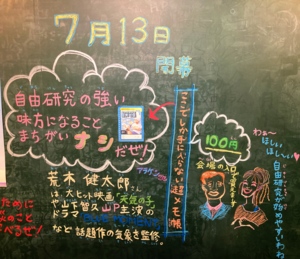 7月13日
開幕
自由研究の強い
味方になること
まちがいナシだぜ!
ここでしか手に入らない超メモ帳
100円
会場の入口で買えます
わぁ〜
ほしい
ほしーい
自由研究が始めやすいわね
アラケン
荒木健太郎さん
は、大ヒット映画「天気の子」
や山下智久 山P主演の
ドラマ
など話題作の気象を監修。
ために
のこと
べるぜ!